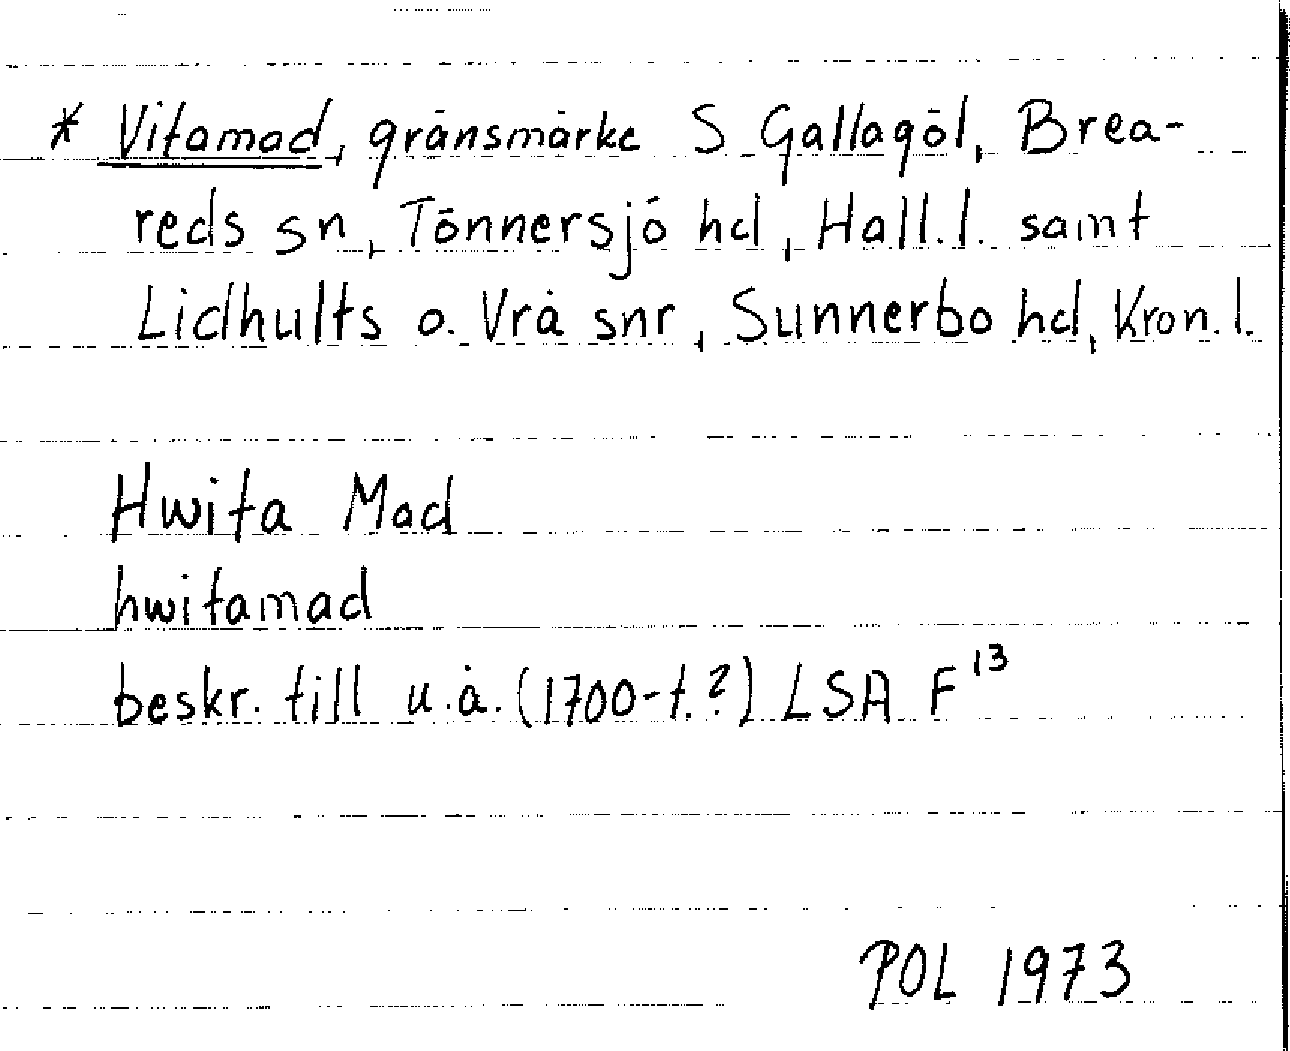 * Vitamad, gränsmärke S Gallagöl, Brea-
reds sn, Tönnersjö hd, Hall.l. samt
Lidhults o. Vrå snr, Sunnerbo hd, Kron.l.
Hwita Mad
hwitamad
beskr. till u.å. (1700-t.?) LSA F¹³
POL 1973